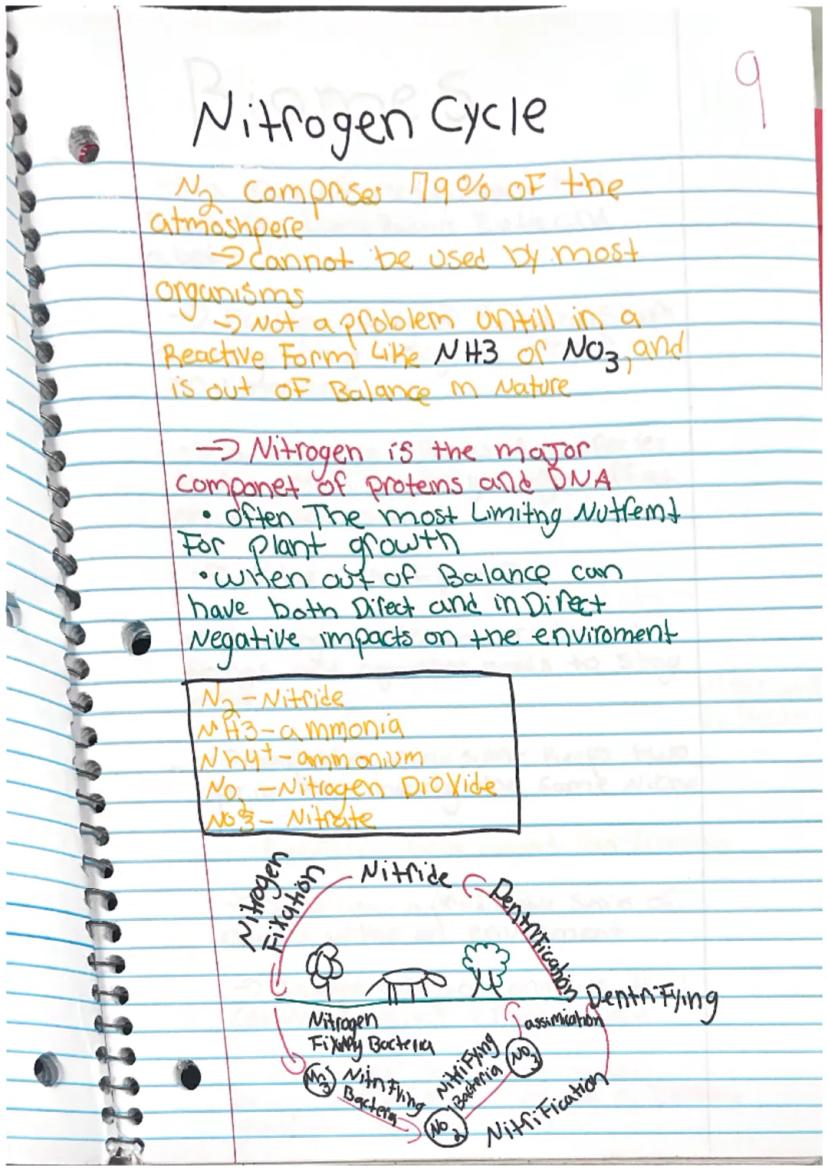 9
Nitrogen Cycle
N2 comprises 79% of the
atmoshpere
→ cannot be used by most
organisms
→ Not a problem untill in a
Reactive Form like NH3 or NO3, and
is out of Balance in Nature
→ Nitrogen is the major
componet of proteins and DNA
• often The most Limiting Nutrient
For plant growth
• when out of Balance can
have both Direct and inDirect
Negative impacts on the enviroment
N2 - Nitride
NH3 - ammonia
Nh4+ - ammonium
NO2 - Nitrogen Dioxide
NO3 - Nitrate
Nitrogen
Fixation
Nitride
Dentrification
Dentrifying
Nitrogen
Fixing Bacteria
assimication
NO3
Nitrifying
Bacteria
NH3
Nitrifying
Bacteria
NO2
Nitrification